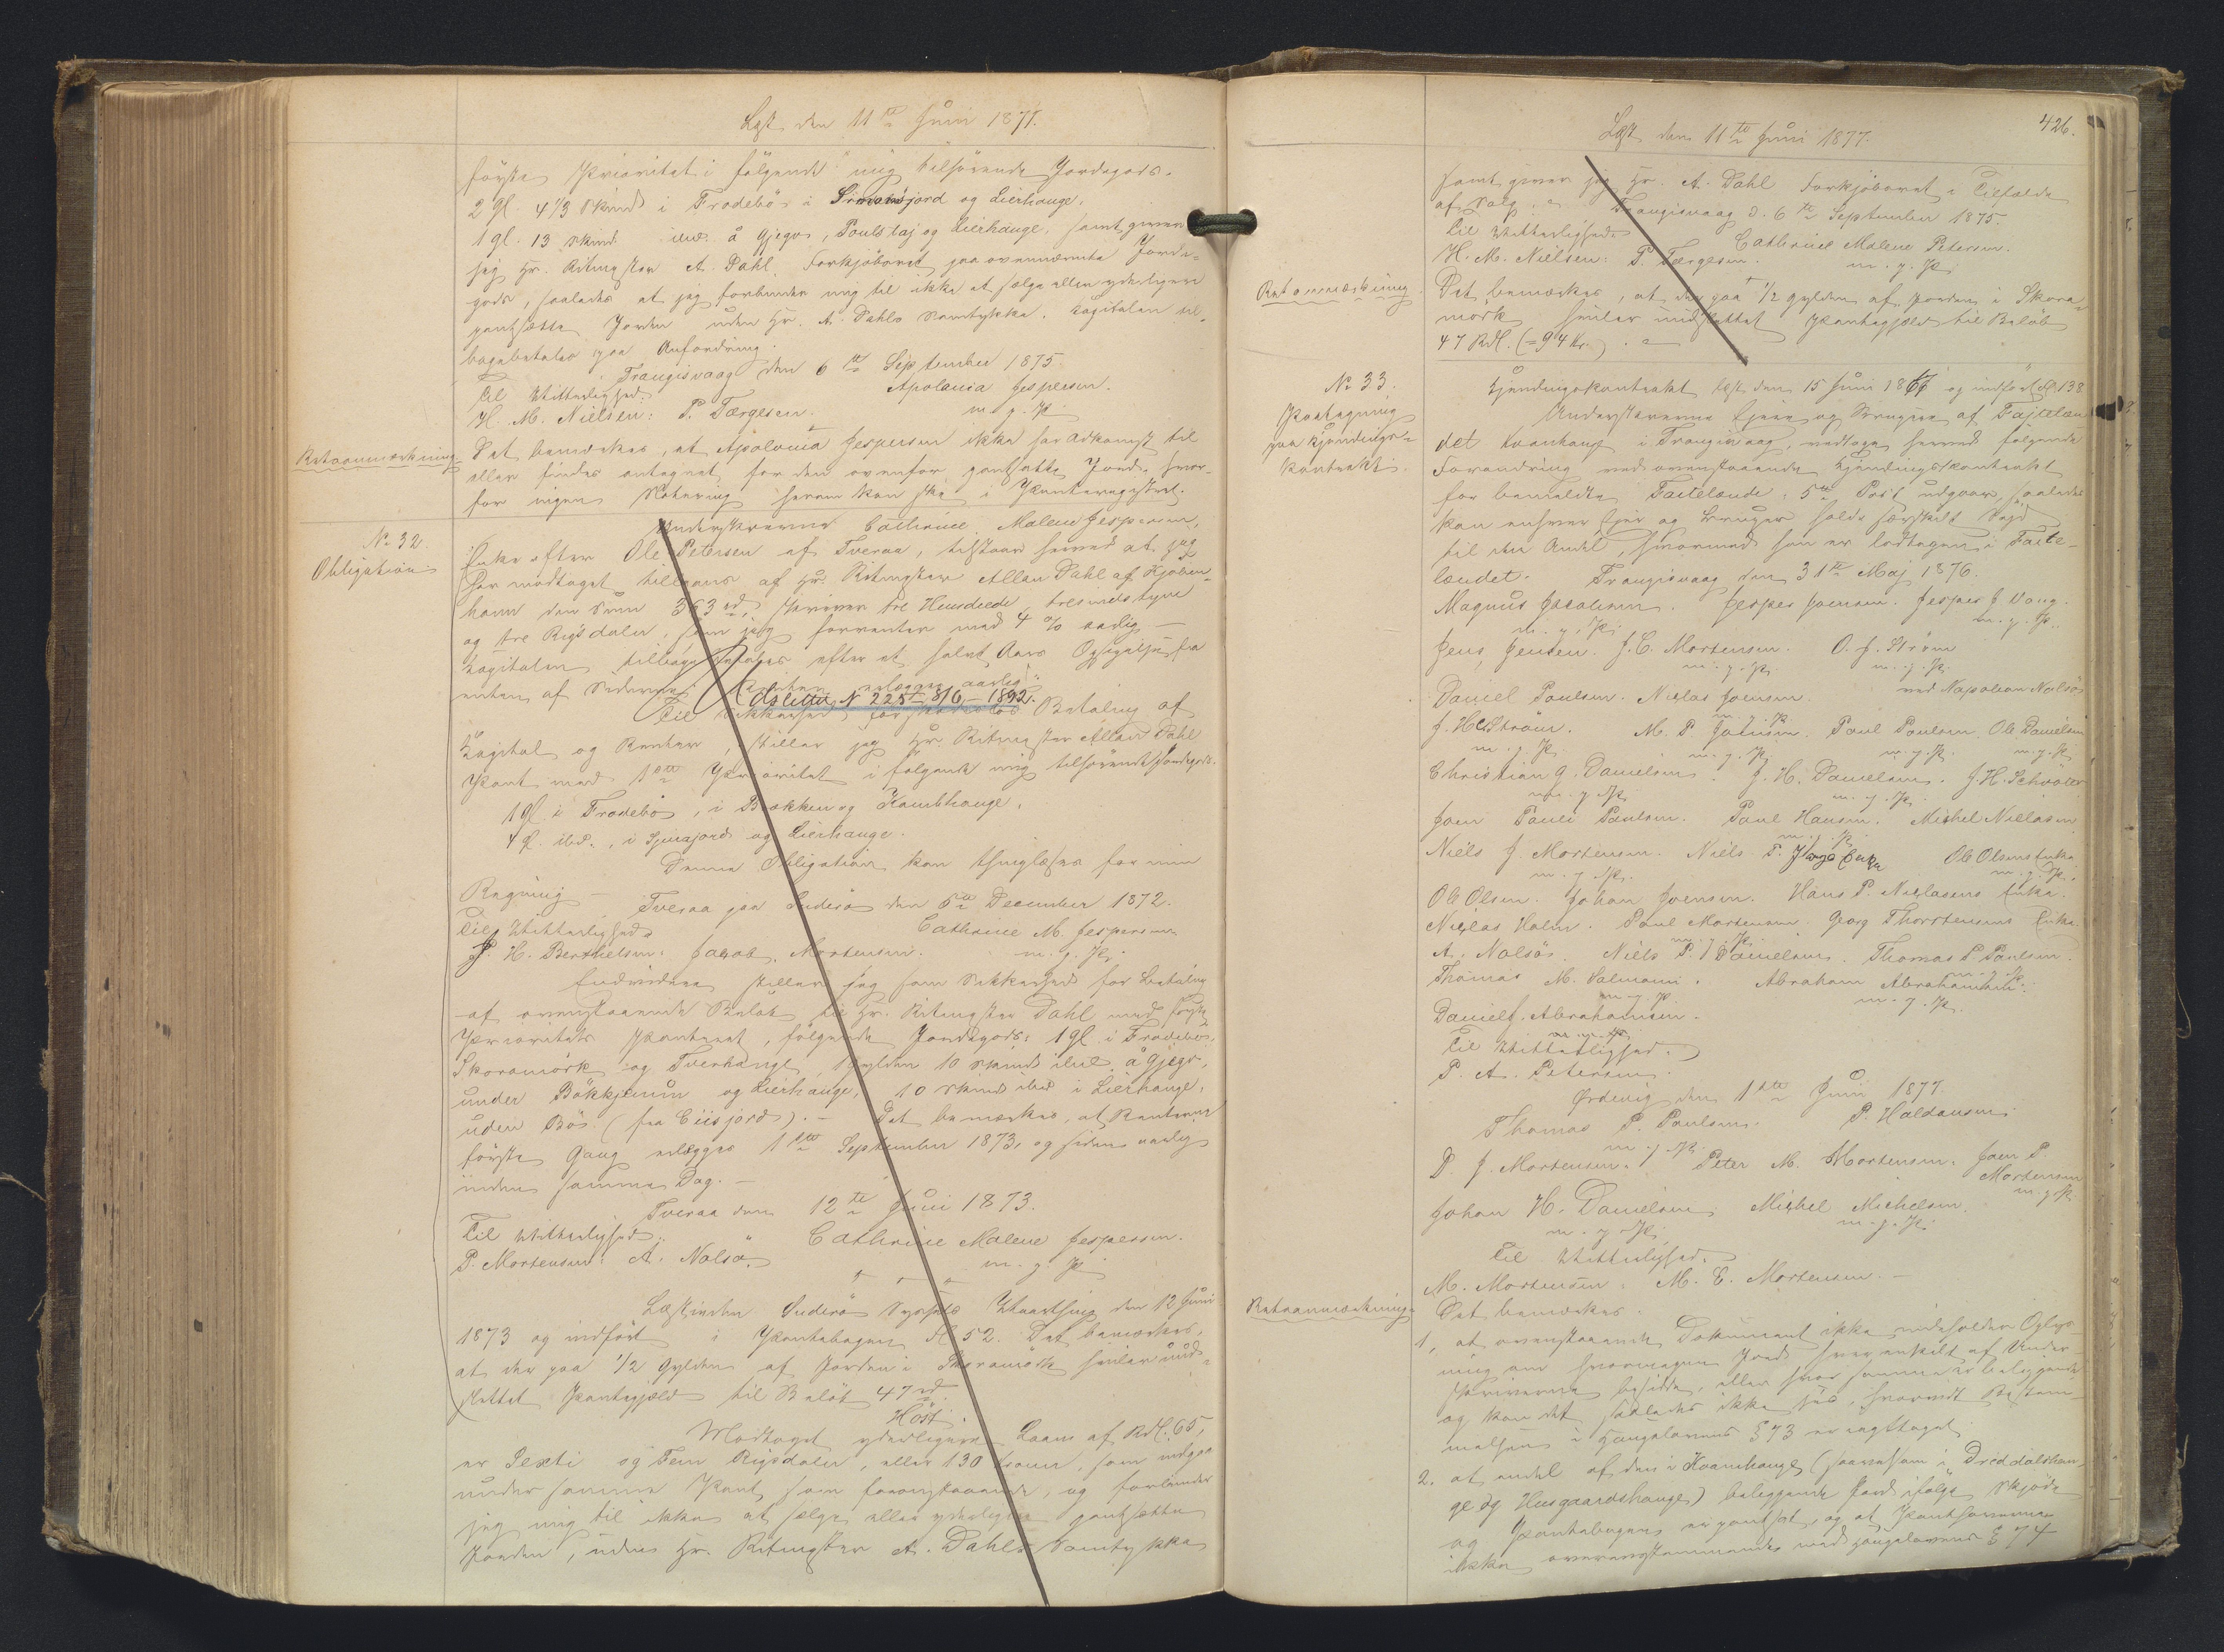 Læst den 11te Juni 1877.
første Prioritet i følgende mig tilhørende Jordegods.
2 Gl. 4 1/3 Skind i Frodebø i jord og Lierhauge.
1 gl. 13 Skind ibid. å Gjøgv, Poulstaj og Lierhauge, samt giver
jeg Hr. Ritmester A. Dahl Forkjøbsret paa ovennævnte Jorde-
gods, saaledes at jeg forbinder mig til ikke at sælge eller yderligere
pantsætte Jorden uden Hr. A. Dahls Samtykke. Kapitalen til-
bagebetales paa Anfordring.
Trangisvaag den 6te September 1875.
Til Vitterlighed: Apolonia Jespersen.
H. M. Nielsen: P. Tærgesen. m. f. P.
Retsanmærkning
Det bemærkes, at Apolonia Jespersen ikke har Adkomst til
eller findes antegnet for den ovenfor pantsatte Jord, hvor-
for ingen Notering herom kan ske i Panteregistret.
No 32.
Obligation
Underskrevne Cathrine Malene Jespersen,
Enke efter Ole Petersen af Tveraa, tilstaar herved at jeg
har modtaget tillaans af Hr. Ritmester Allan Dahl af Kjøben-
havn den Sum 363 rd, skriver tre Hundrede tresindstyve
og tre Rigsdaler, som jeg forrenter med 4 % aarlig.
Kapitalen tilbagebetales efter et halvt Aars Opsigelse fra
enten af Siderne. erlægges aarlig.
Aflæst N 225 8/6 - 1892.
Til Sikkerhed for skadesløs Betaling af
Kapital og Renter, stiller jeg Hr. Ritmester Allan Dahl
Pant med 1ste Prioritet i følgende mig tilhørende Jordegods.
1 Gl. i Frodebø, i Bakken og Kambhauge,
4 gl. ibid., i jord og Lierhauge.
Denne Obligation kan thinglæses for min
Regning Tveraa paa Suderø den 6te December 1872.
Til Vitterlighed Cathrine M. Jespersen
J. H. Berthelsen: Jacob Mortensen. m. f. P.
Endvidere stiller jeg som Sikkerhed for Betaling
af ovenstaaende Beløb til Hr. Ritmester Dahl med første
Prioritets Panteret, følgende Jordegods: 1 gl. i Frodebø
Skoramørk og Tverhauge, 1 Gylden 10 Skind ibid. å Gjøgv,
under Bökkjunum og Lierhauge, 10 Skind ibid. i Lierhauge,
uden Bø (fra Eiisjord). Det bemærkes, at Renterne
første Gang erlægges 1ste September 1873, og siden aarlig
inden samme Dag.
Tveraa den 12te Juni 1873.
Til Vitterlighed Cathrine Malene Jespersen.
P. Mortensen: A. Nolsø. m. f. P.
Læst inden Suderø Syssels Vaarthing den 12 Juni
1873 og indført i Pantebogen Fol 52. Det bemærkes,
at der paa 1/2 Gylden af Jorden i Skoramørk hviler uud-
slettet Pantegjæld til Beløb 47 rd.
Høst.
Modtaget yderligere Laan af Rdl. 65,
er Sexti og Fem Rigsdaler, eller 130 Kroner, som indgaar
under samme Pant som foranstaaende, og forbinder
jeg mig til ikke at sælge eller yderligere pantsætte
Jorden, uden Hr. Ritmester A. Dahls Samtykke
426.
Læst den 11te Juni 1877.
samt giver jeg Hr. A. Dahl Forkjøbsret i Tilfælde
af Salg. Trangisvaag d. 6te September 1875.
Til Vitterlighed: Cathrine Malene Petersen.
H. M. Nielsen: P. Tærgesen. m. f. P.
Retsanmærkning.
Det bemærkes, at der paa 1/2 Gylden af Jorden i Skora-
mørk hviler uudslettet Pantegjæld til Beløb
47 Rdl. (= 94 Kr.).
No 33.
Paategning
paa Hjendings-
kontrakt.
Hjendingskontrakt læst den 15 Juni 1866 og indført Fol 138
Understrevne Ejere og Brugere af Fajtelæn
det Kvanhauge i Trangisvaag, vedtage herved følgende
Forandring ved ovenstaaende Hjendingskontrakt
for bemeldte Faitelænde: 5te Post udgaar, saaledes
kan enhver Ejer og Bruger holde særskilt Vejd
til den Andel, hvormed han er lodtagen i Faite-
lændet. Trangisvaag den 31te Maj 1876.
Magnus Jacobsen. Jesper Joensen. Jesper J. Vang.
m. f. P. m. f. P.
Jens Jensen. J. C. Mortensen. O. J. Strøm
m. f. P. m. f. P.
Daniel Poulsen. Niclas Joensen. ved Napoleon Nolsø
m. f. P.
J. H. Strøm. M. P. Joensen. Poul Poulsen. Ole Danielsen
m. f. P. m. f. P. m. f. P. m. f. P.
Christian G. Danielsen. J. H. Danielsen. J. H. Schrøter
m. f. P. m. f. P.
Joen Pauli Poulsen. Poul Hansen. Michel Niclasen
m. f. P.
Niels J. Mortensen. Niels P. Enke Ole Olsens Enke
m. f. P. m. f. P.
Ole Olsen. Johan Joensen. Hans P. Niclasens Enke.
Niclas Holm. Poul Mortensen. Georg Thorstensens Enke.
m. f. P.
A. Nolsø. Niels P. Danielsen. Thomas P. Poulsen.
m. f. P.
Thomas M. Salmann. Abraham Abrahamsen.
m. f. P. m. f. P.
Daniel J. Abrahamsen.
m. f. P.
Til Vitterlighed.
P. A. Petersen.
Ørdevig den 1ste Juni 1877.
Thomas P. Poulsen. P. Haldansen.
m. f. P.
D. J. Mortensen. Peter M. Mortensen. Joen P.
Mortensen
m. f. P.
Johan H. Danielsen. Michel Michelsen.
m. f. P. m. f. P.
Til Vitterlighed.
M. Mortensen. M. E. Mortensen.
Retsanmærkning.
Det bemærkes
1, at ovenstaaende Dokument ikke indeholder Oplys-
ning om hvormegen Jord hver enkelt af Under-
skriverne besidde, eller hvor samme er beliggende
og kan det saaledes ikke sees, hvorvidt Bestem-
melsen i Haugelovens § 73 er iagttaget.
2. at endel af den i Kvanhauge (saavelsom i Dreddalshau-
ge og Husgaardshauge) beliggende Jord ifølge Skjøde
og Pantebogen er pantsat, og at Panthaverne
ikke overensstemmende med Haugelovens § 74